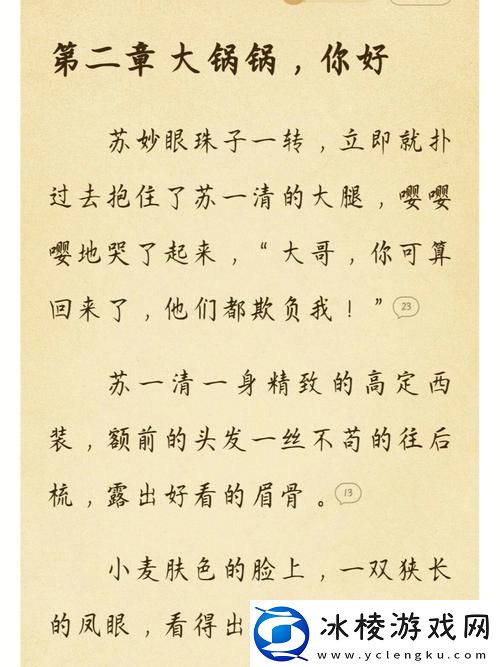 第二章 大锅锅，你好
苏妙眼珠子一转，立即就扑
过去抱住了苏一清的大腿，嘤嘤
嘤地哭了起来，“大哥，你可算
回来了，他们都欺负我！” 23
苏一清一身精致的高定西
装，额前的头发一丝不苟的往后
梳，露出好看的眉骨。 13
小麦肤色的脸上，一双狭长
的凤眼，看得出
冰棱游戏网
www.yclengku.com